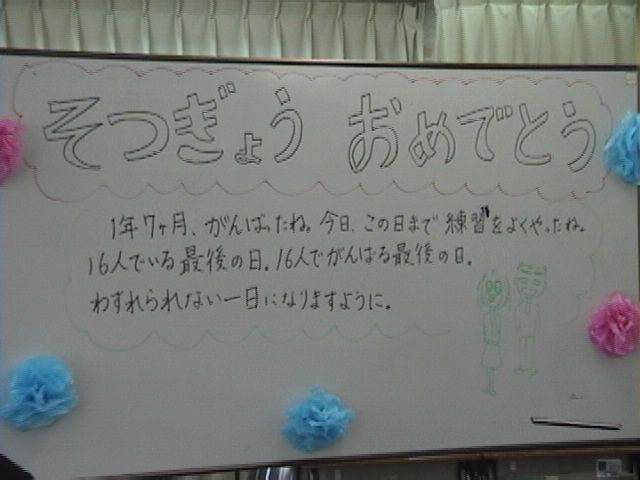 そつぎょう おめでとう
1年7ヶ月、がんばったね。今日、この日まで練習をよくやったね。
16人でいる最後の日。16人でがんばる最後の日。
わすれられない一日になりますように。